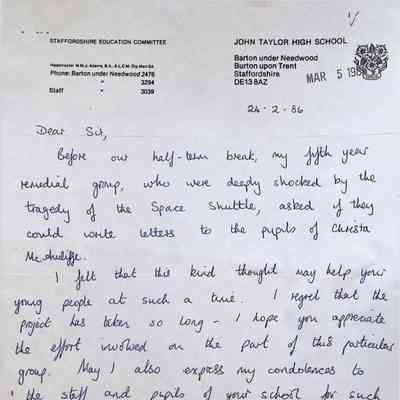 STAFFORDSHIRE EDUCATION COMMITTEE
JOHN TAYLOR HIGH SCHOOL
Headmaster
Phone: Barton under Needwood 2476
3294
Staff " 3039
Barton under Needwood
Burton upon Trent
Staffordshire
DE13 8AZ
MAR 5 198
24-2-86
Dear Sir,
Before our half-term break, my fifth year
remedial group, who were deeply shocked by the
tragedy of the Space Shuttle, asked if they
could write letters to the pupils of Christa
McAuliffe.
I felt that this kind thought may help your
young people at such a time. I regret that the
project has taken so long - I hope you appreciate
the effort involved on the part of this particular
group. May I also express my condolences to
the staff and pupils of your school for such